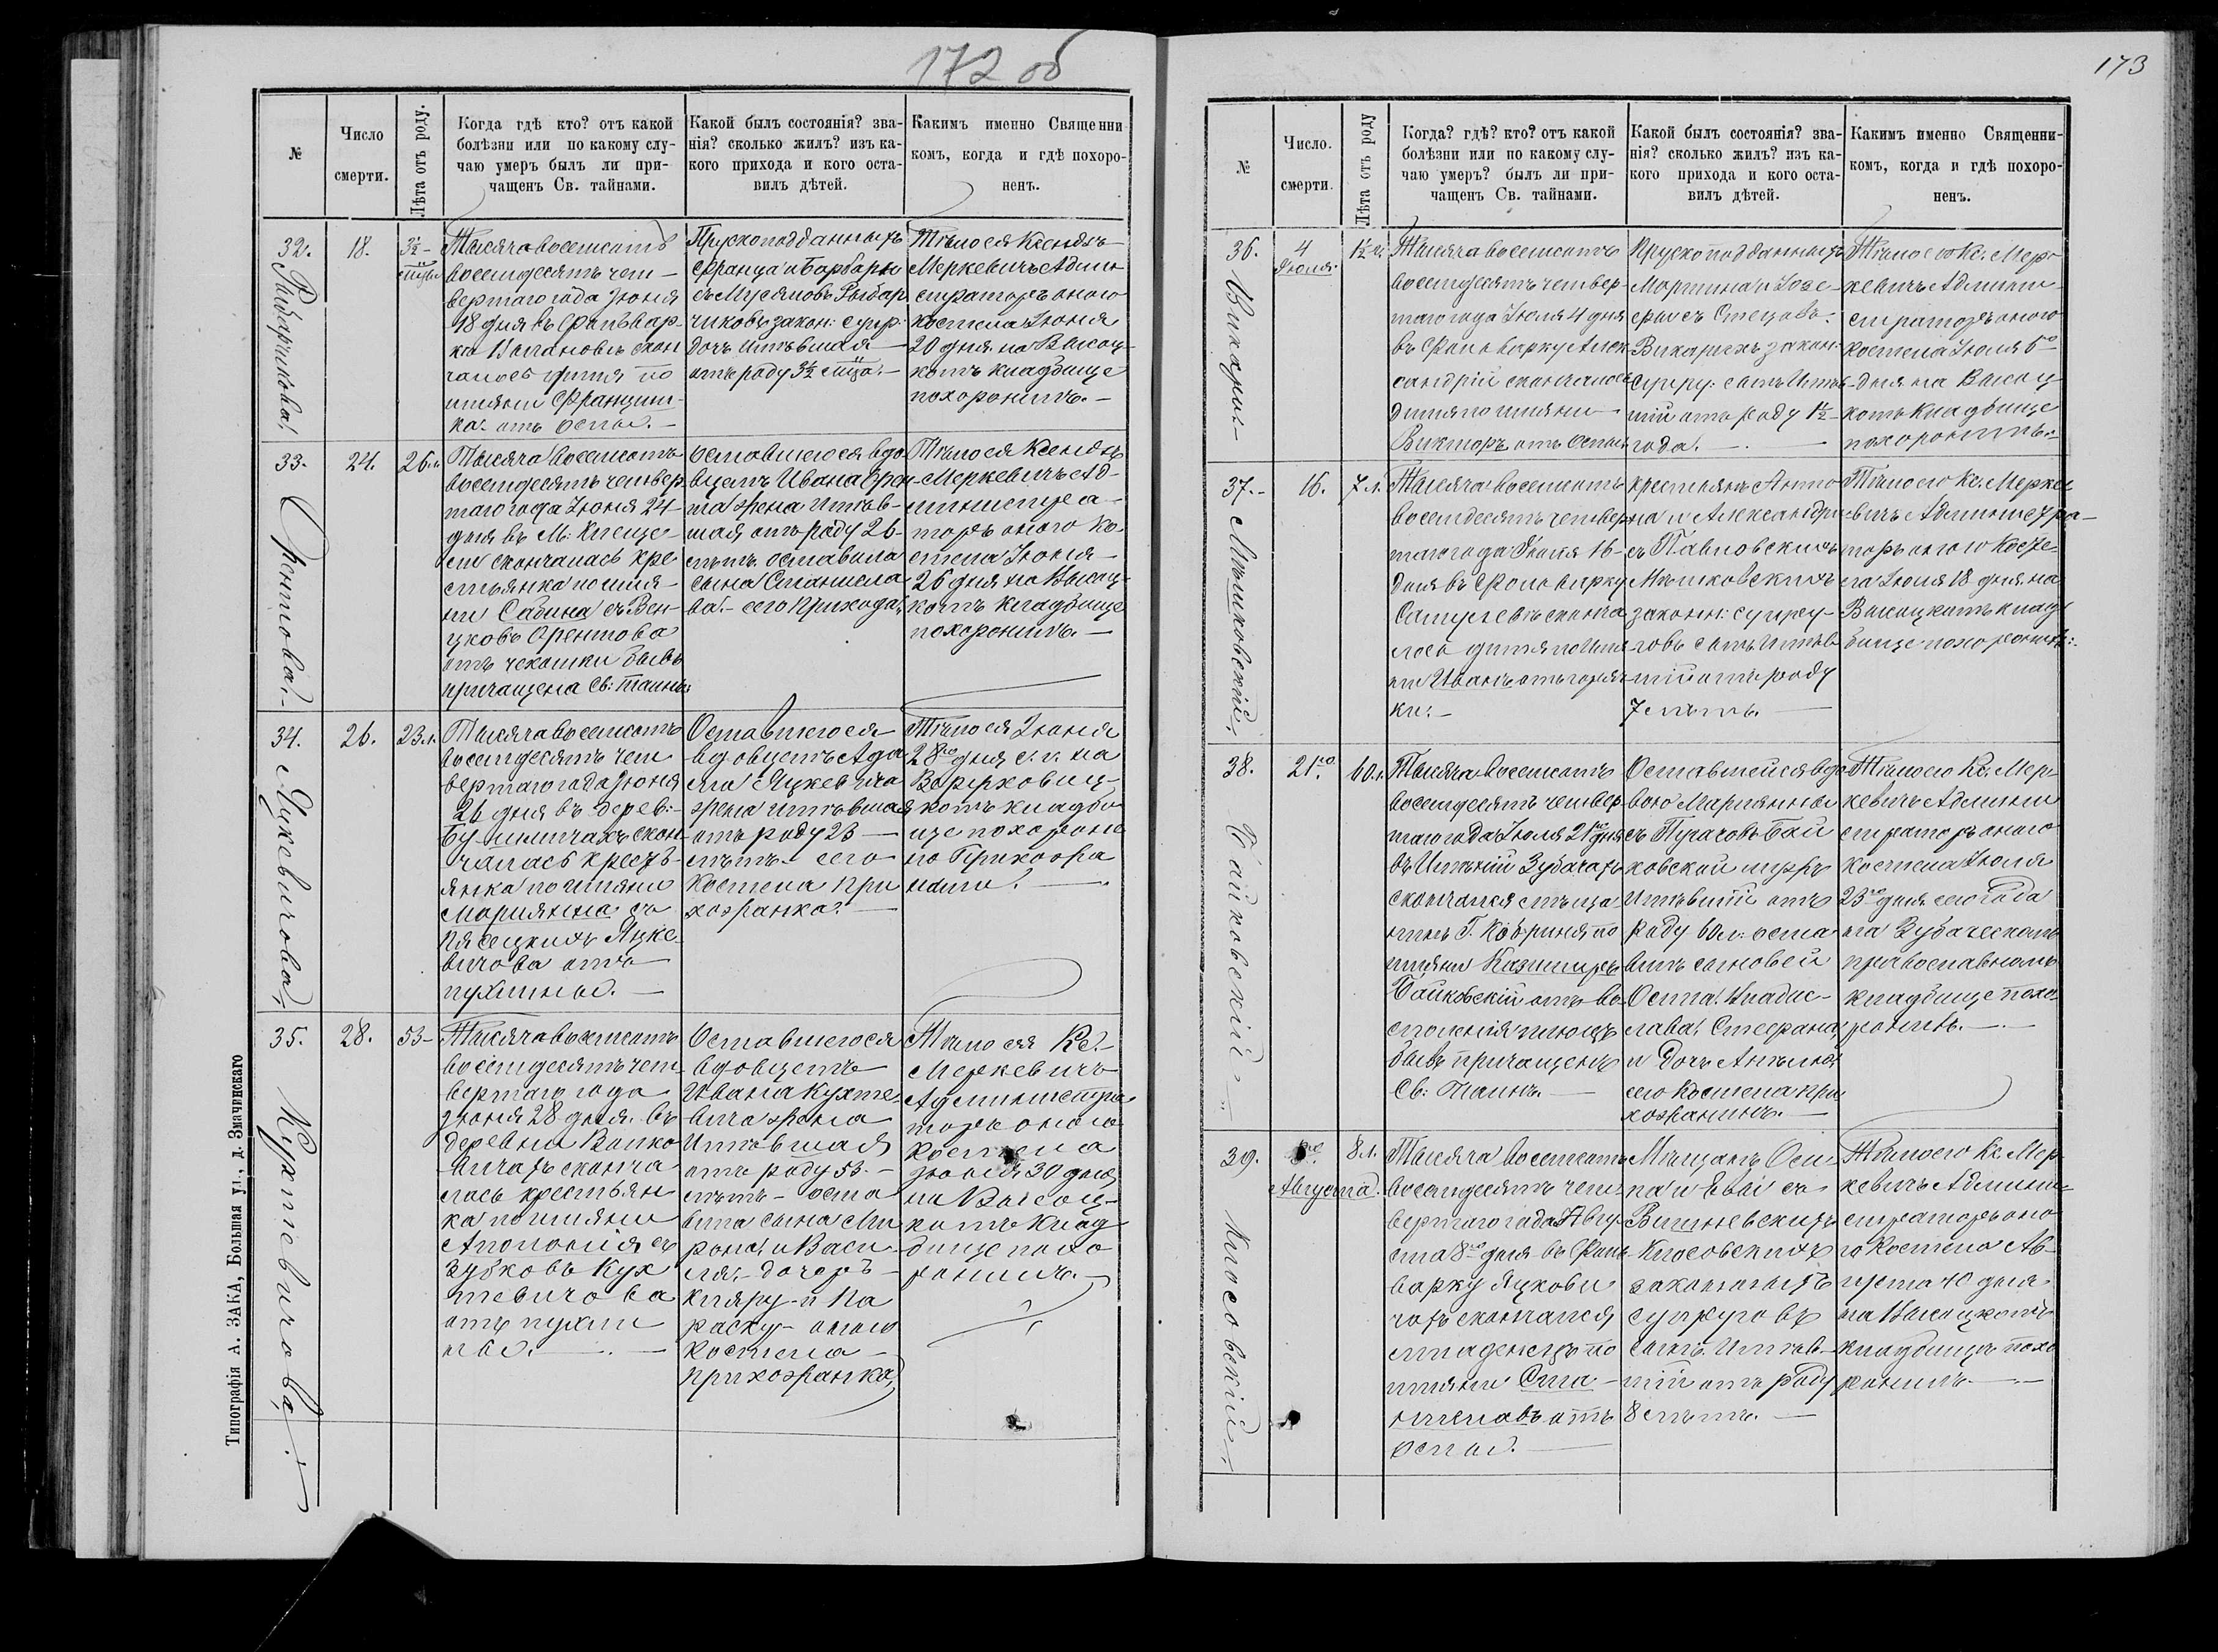 172 об
№
Число
смерти.
Лѣта отъ роду.
Когда гдѣ кто? отъ какой
болѣзни или по какому слу-
чаю умеръ былъ ли при-
чащенъ Св. тайнами.
Какой былъ состоянія? зва-
нія? сколько жилъ? изъ ка-
кого прихода и кого оста-
вилъ дѣтей.
Какимъ именно Священни
комъ, когда и гдѣ похоро-
ненъ.
32.
18.
3½-
Тысяча восемсотъ
восемдесятъ чет-
вертаго года Іюня
18 дня въ Фольвар-
скон
чалось дитя по
имяни Францишк
ка. отъ оспы.-
Прускоподданныхъ
Франца и Барбары
Рыбар
чиковъ закон: супр.
дочъ имѣвшая
отъ роду 3½
Тѣло ея Ксендзъ
Меркевичъ Админ
страторъ оного
костела Іюня
20 дня на Высоц-
комъ кладбище
похоронилъ.-
33.
Орентова.-
24.
26.л
Тысяча восемсотъ
восемдесятъ четвер
таго года Іюня 24
дня въ М:
скончалась кре
стьянка по имя-
ни Сабина съ Вен-
цковъ Орентова
отъ чехотки бывъ
причащена Св: таинъ.
оставшегося вдо
вцемъ Ивана Орен-
та жена имѣв-
шая отъ роду 26-
лѣтъ оставила
сына Станисла
ва.- сего Прихода.
Тѣло ея Ксендзъ
Меркевичъ Ад-
министра-
торъ оного ко
стела Іюня
26 дня на Высоц-
комъ кладбище
похоронилъ.-
34.
Яцкевичова
26.
23.л.
Тысяча восемсотъ
восемдесятъ чет
вертаго года Іюня
26 дня въ дерев:-
скон-
чалась кресть-
янка по имяни
Марияна съ
Пясецкихъ Яцке-
вичова отъ
пухлины.-
Оставшегося
вдовцемъ Ада
ма Яцкевича
жена имѣвшая
отъ роду 23-
лѣтъ- сего
Костела при
хожанка.-
Тѣло ея Іюня
28го дня с.г. на
комъ кладби
ще похороне
но Прихожа
нами.-
35.
Кухтевичова.
28.
53-
Тысяча восемсотъ
восемдесятъ чет
вертаго года
Іюня 28 дня въ
деревни Волко
вичахъ сконча
лась крестьян
ка по имяни
Аполонія съ
Зубковъ Кух
тевичова
отъ пухли
ны.-
Оставшегося
вдовцемъ
Ивана Кухте-
вича жена
Имѣвшая
отъ роду 53.-
лѣтъ- оста
вила сына Ми
рона, и Васи
ля,- дочеръ-
Кляру- и Па
раску- оного
Костела-
прихожанка,
Тѣло ея Кс.-
Меркевичъ
Администра
торъ оного
Костела
Іюня 30 дня
на Высоц-
комъ клад
бище похо
ронилъ.-
Типографія А. ЗАКА, Большая ул., д. Змачинскаго
173
№
Число.
смерти.
Лѣта отъ роду
Когда? гдѣ? кто? отъ какой
болѣзни или по какому слу-
чаю умеръ? былъ ли при-
чащенъ Св. тайнами.
Какой былъ состоянія? зва-
нія? сколько жилъ? изъ ка-
кого прихода и кого оста-
вилъ дѣтей.
Какимъ именно Священни-
комъ, когда и гдѣ похоро-
ненъ.
36.
4
Іюля.
Тысяча восемсотъ
восемдесятъ четвер-
таго года Іюля 4 дня
въ Фольварку Алек
сандріи скончалось
дитя по имяни
Викторъ отъ Оспы
Прускоподданныхъ
Мартина и Юзе-
фы съ
закон:
супру: сынъ Имѣв-
шій отъ роду 1½-
года.-
Тѣло его Кс. Мер-
кевичъ Админи-
страторъ оного
костела Іюля 6го
дня на Высоц-
комъ Кладбище
похоронилъ:-
37.-
Мышковскій.
16.
7л.
Тысяча восемсотъ
восемдесятъ четвер
таго года Іюля 16-
дня въ Фольварку
сконча
лось дитя по Имя
ни Иванъ отъ горяч
ки.-
крестьянъ Анто
на и Александры
съ Павловскихъ
Мышковскихъ
законн: супру-
говъ сынъ Имѣв
шій отъ роду
7 лѣтъ.-
Тѣло его Кс. Мерке
вичъ Администра-
торъ оного Косте
ла Іюля 18 дня на
Высоцкомъ клад
бище похоронилъ:.
38.
Байковскій
21го.
60.л.
Тысяча восемсотъ
восемдесятъ четвер
таго года Іюля 21го дня
въ Имѣній Зубачахъ
скончался мѣща
нинъ Г. Кобриня по
имяни Казимиръ
Байковскій отъ во
споленія
бывъ причащенъ
Св: Таинъ.-
Оставшейся вдо
вою Марианны
съ Пугачовъ Бай
ковской мужъ
Имѣвшій отъ
роду 60 л: оста
вилъ сыновей
Осипа, Владис-
лава, Стефана,
и дочъ Анѣлю,
сего Костела при
хожанинъ.-
Тѣло его Кс. Мер-
кевичъ Админи
страторъ оного
костела Іюля
23го дня сего Года
на Зубаческомъ
православномъ
кладбище похо
ронилъ.-
39.
Клосовскій
8го
Августа.
8л.
Тысяча восемсотъ
восемдесятъ чет
вертаго года Авгу-
ста 8го дня въ Фоль
варку Яцкови
чахъ скончался
младенецъ по
имяни Ста-
ниславъ отъ
оспы.-
Мѣщанъ Оси
па и Евы съ
Вишневскихъ
Клосовскихъ
законныхъ
супруговъ
сынъ Имѣв-
шій отъ роду
8 лѣтъ.-
Тѣло его Кс. Мер
кевичъ Админи
страторъ оно
го Костела Ав-
густа 10 дня
на Высоцкомъ
кладбищѣ похо
ронилъ.-